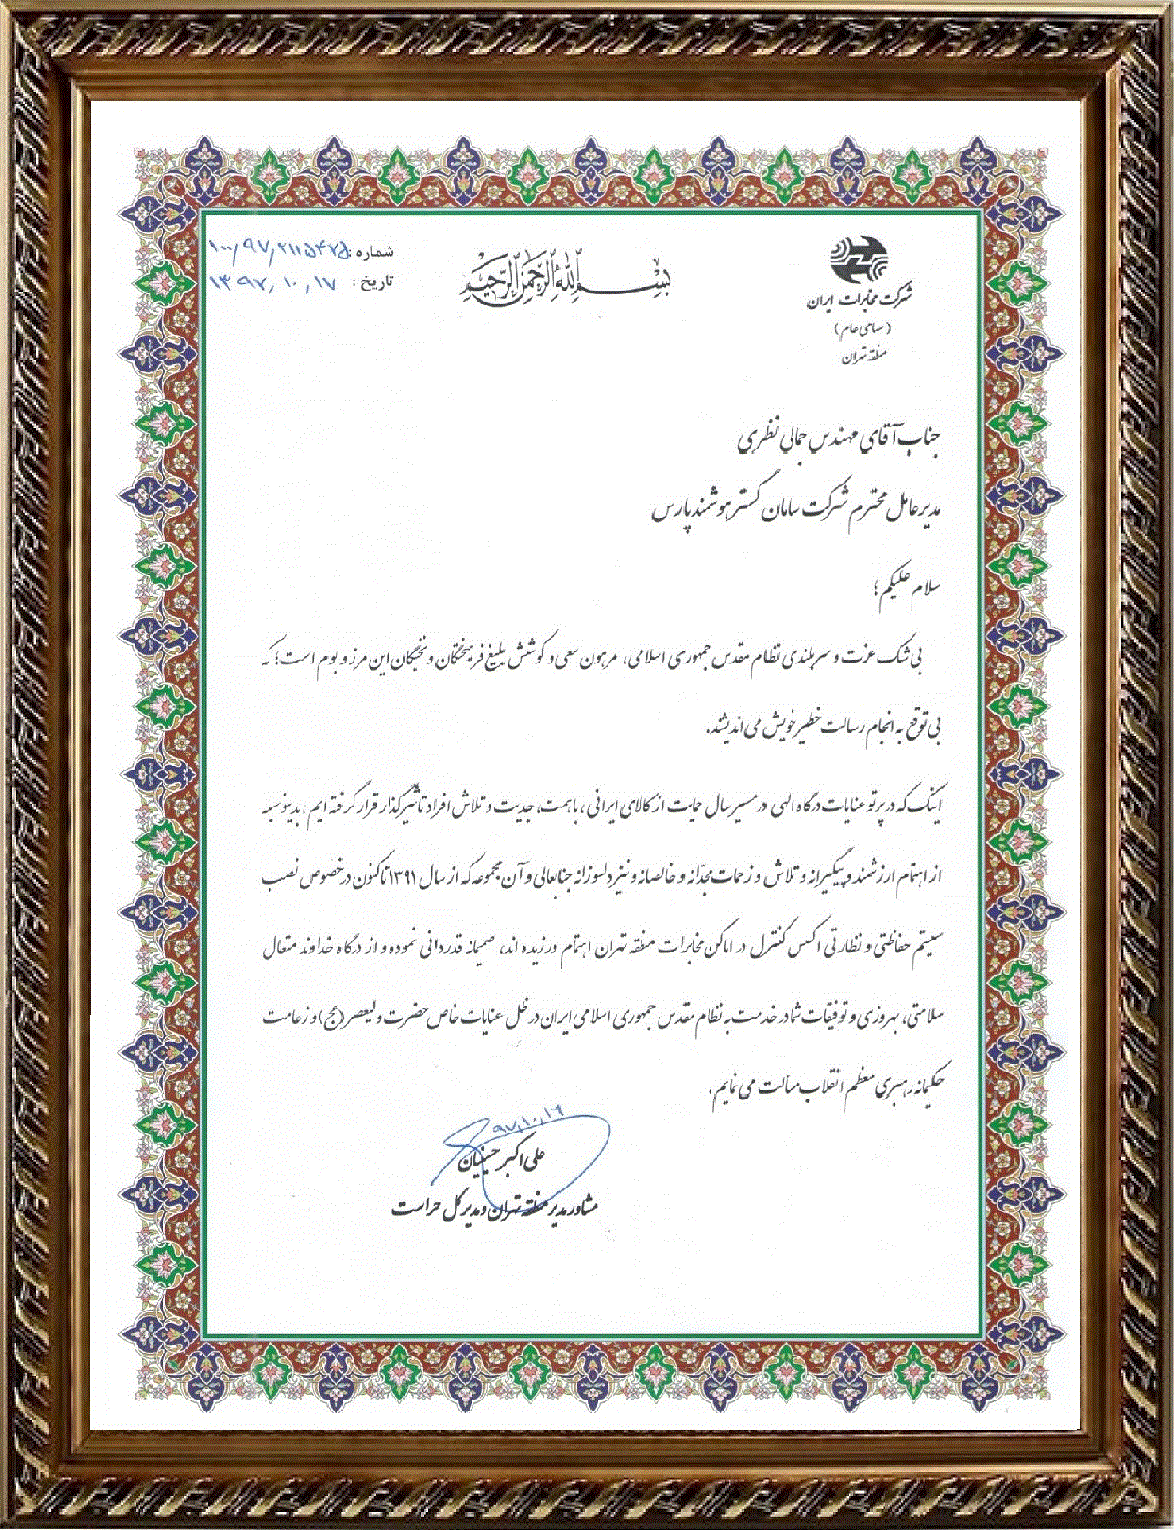 بسم الله الرحمن الرحیم
شرکت مخابرات ایران
(سهامی عام)
منطقه تهران
شماره :
تاریخ : ۱۳۹۷,۱۰,۱۷
جناب آقای مهندس جمالی نظری
مدیرعامل محترم شرکت سامان گستر هوشمند پارس
سلام علیکم؛
بی شک عزت و سربلندی نظام مقدس جمهوری اسلامی، مرهون سعی و کوشش بلیغ فرهیختگان و نخبگان این مرز و بوم است؛ که
بی توقع به انجام رسالت خطیر خویش می اندیشند.
اینک که در پرتو عنایات درگاه الهی در مسیر سال حمایت از کالای ایرانی، با همت، جدیت و تلاش افراد تاثیرگذار قرار گرفته ایم، بدینوسیله
از اهتمام ارزشمند و پیگیرانه و تلاش و زحمات مجدّانه و خالصانه و نیز دلسوزانه جنابعالی و آن مجموعه که از سال ۱۳۹۱ تاکنون در خصوص نصب
سیستم حفاظتی و نظارتی اکسس کنترل در اماکن مخابرات منطقه تهران اهتمام ورزیده اند، صمیمانه قدردانی نموده و از درگاه خداوند متعال
سلامتی، بهروزی و توفیقات شما در خدمت به نظام مقدس جمهوری اسلامی ایران در ظل عنایات خاص حضرت ولیعصر (عج) و زعامت
حکیمانه رهبری معظم انقلاب مسألت می نمایم.
۹۷,۱۰,۱۶
علی اکبر حسینیان
مشاور مدیر منطقه تهران و مدیر کل حراست